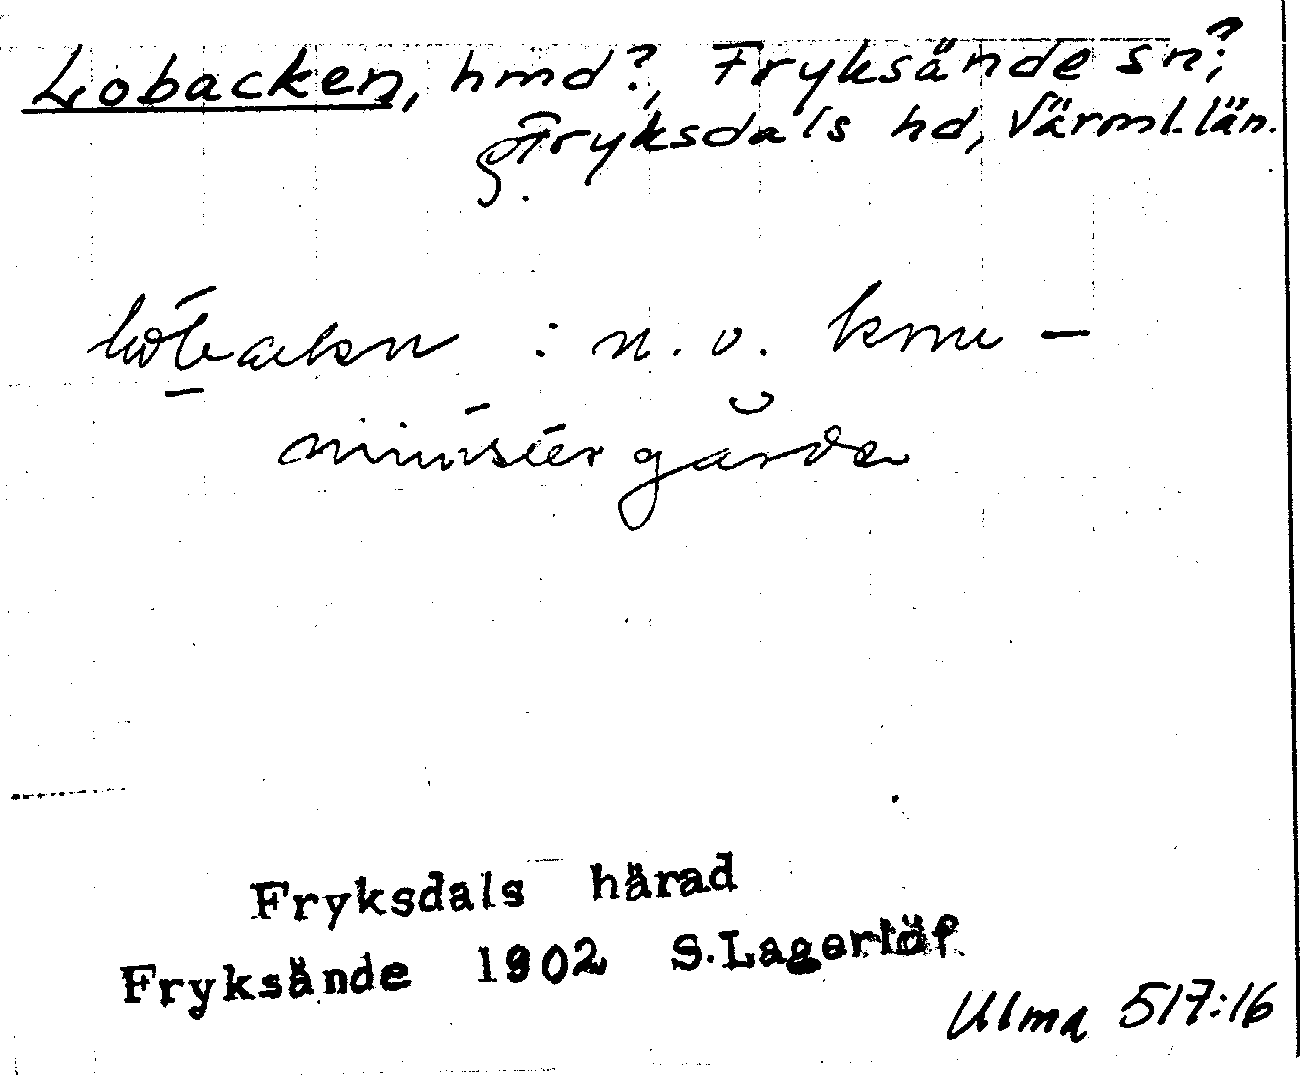 Lobacken, hmd?, Fryksände sn?;
Fryksdals hd, Värml. län.
: n. o. kmi-
ministergården
Fryksdals härad
Fryksände 1902 S. Lagerlöf
Ulma 517:16